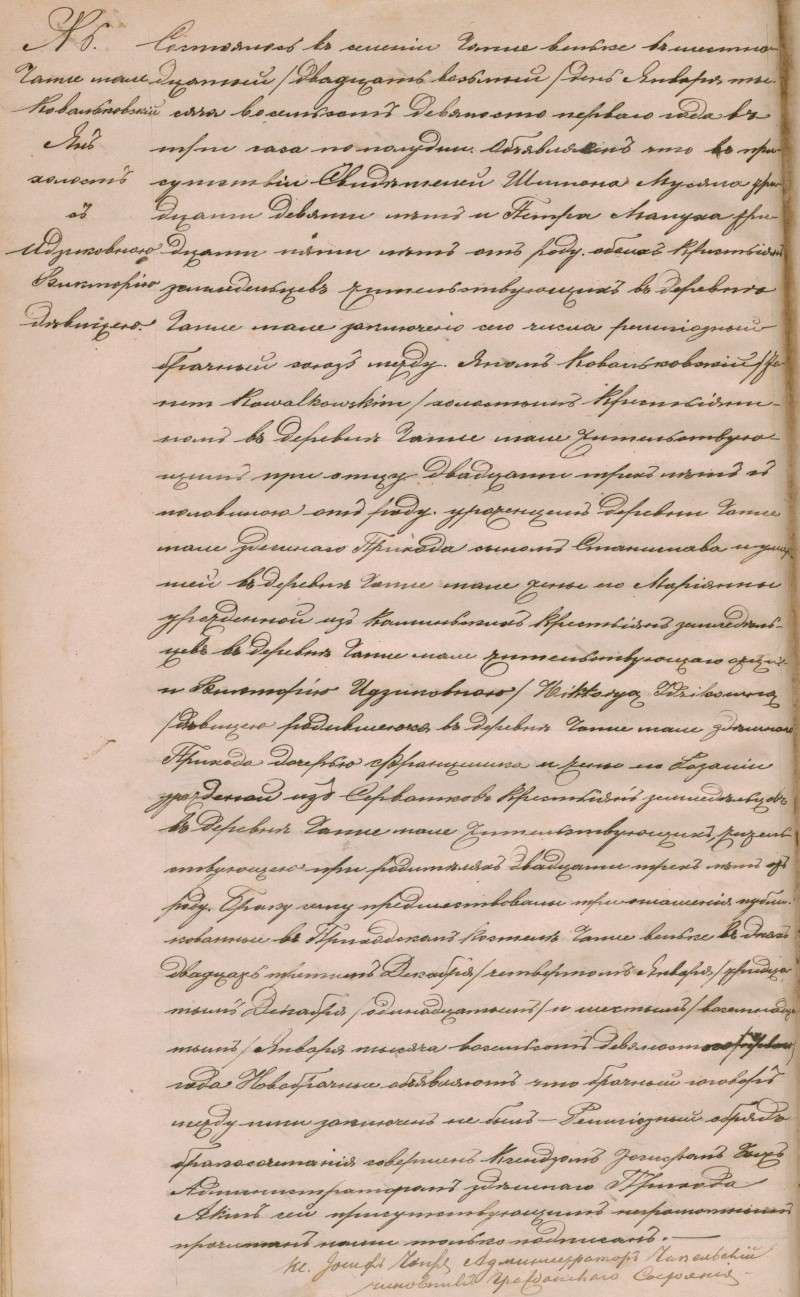 № 6.
Чапле мале
Ковальковскій
Янъ
холостъ
съ
Идзиковною
Викторію
дѣвицею.
Состоялось въ селеніи Чапле вельке въ шестна-
дцатый /двадцать восьмый/ день Января ты-
сяча восемьсотъ девяносто перваго года въ
три часа по полудни. Объявляемъ что въ при-
сутствіи Свидѣтелей Шимона Мусяла три-
дцати девяти лѣтъ и Петра три-
дцати пяти лѣтъ отъ роду, обоихъ Крестьянъ
земледельцевъ жительствующихъ въ деревнѣ
Чапле мале заключено сего числа религіозный
брачный союзъ между Яномъ Ковальковскій /Ja-
nem Kowalkowskim/ холостымъ Крестьяни-
номъ въ деревнѣ Чапле мале жительствую-
щимъ при отцу двадцати трехъ лѣтъ съ
половиною отъ роду, урожденцемъ деревни Чапле
мале здешнаго Прихода сыномъ Станислава и умер-
шей въ деревнѣ Чапле мале жены его Маріянны
урожденной изъ Крестьянъ земледель-
цевъ въ деревнѣ Чапле мале жительствующаго отца
и Викторію Идзиковною /Wiktorya Idzikowna
/дѣвицею родившеюся въ деревнѣ Чапле мале здешнаго
Прихода дочерью Францишка и жены его
урожденой изъ Серватковъ Крестьянъ земледельцевъ
въ деревнѣ Чапле мале жительствующихъ, житель-
ствующею при родителяхъ двадцати трехъ лѣтъ отъ
роду. Браку сему предшествовали три оглашенія публи-
кованные въ Приходскомъ Костелѣ Чапле вельке въ дняхъ
двадцать третьимъ Декабря /четвертомъ Января/ тридца-
тымъ Декабря /одинадцатымъ/ и шестымъ /восемнадца-
тымъ/ Января тысяча восемьсотъ девяносто перваго
года Новобрачные объявляютъ что брачный договоръ
между ими заключенъ не былъ — Религіозный обрядъ
бракосочетанія совершенъ Ксендзомъ Іосифомъ
Администраторомъ здешнаго Прихода
Актъ сей присутствующимъ неграмотнымъ
прочитанъ нами только подписанъ. —
Кс. Іосифъ Администраторъ Чапельскій
чиновникъ Гражданскаго Состоянія